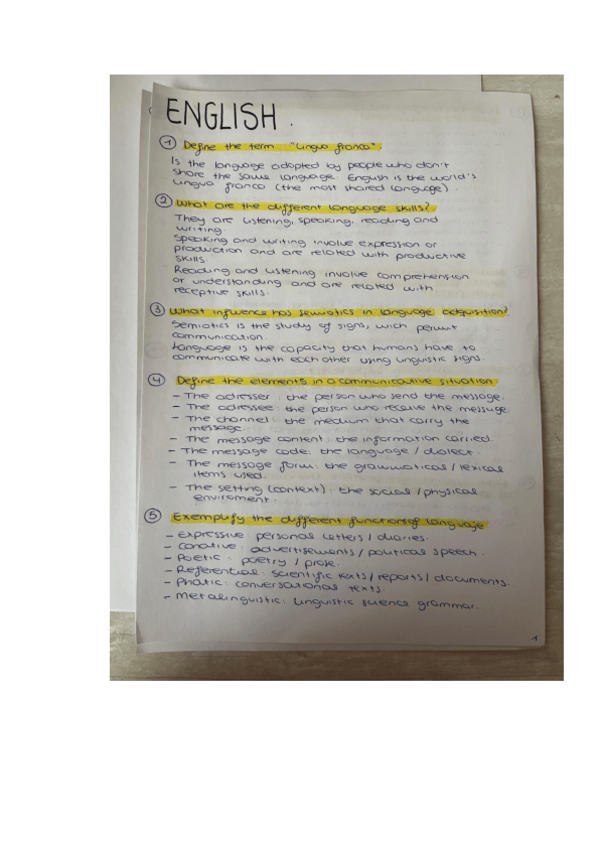 ENGLISH.
1 Define the term "Lingua franca".
Is the language adopted by people who don't
share the same language. English is the world's
lingua franca (the most shared language).
2 What are the different language skills?
They are listening, speaking, reading and
writing.
Speaking and writing involve expression or
production and are related with productive
skills.
Reading and listening involve comprehension
or understanding and are related with
receptive skills.
3 What influence has semiotics in language adquisition?
Semiotics is the study of signs, wich permit
communication.
Language is the capacity that humans have to
communicate with each other using linguistic signs.
4 Define the elements in a communicative situation
- The adresser: the person who send the message.
- The adressee: the person who receive the message.
- The channel: the medium that carry the
message.
- The message content: the information carried.
- The message code: the language / dialect.
- The message form: the grammatical / lexical
items used.
- The setting (context): the social / physical
enviroment.
5 Exemplify the different functions of language
- Expressive: personal letters / diaries.
- Conative: advertisements / political speech.
- Poetic: poetry / prose.
- Referential: scientific texts / reports / documents.
- Phatic: conversational texts.
- Metalinguistic: linguistic science grammar.
1